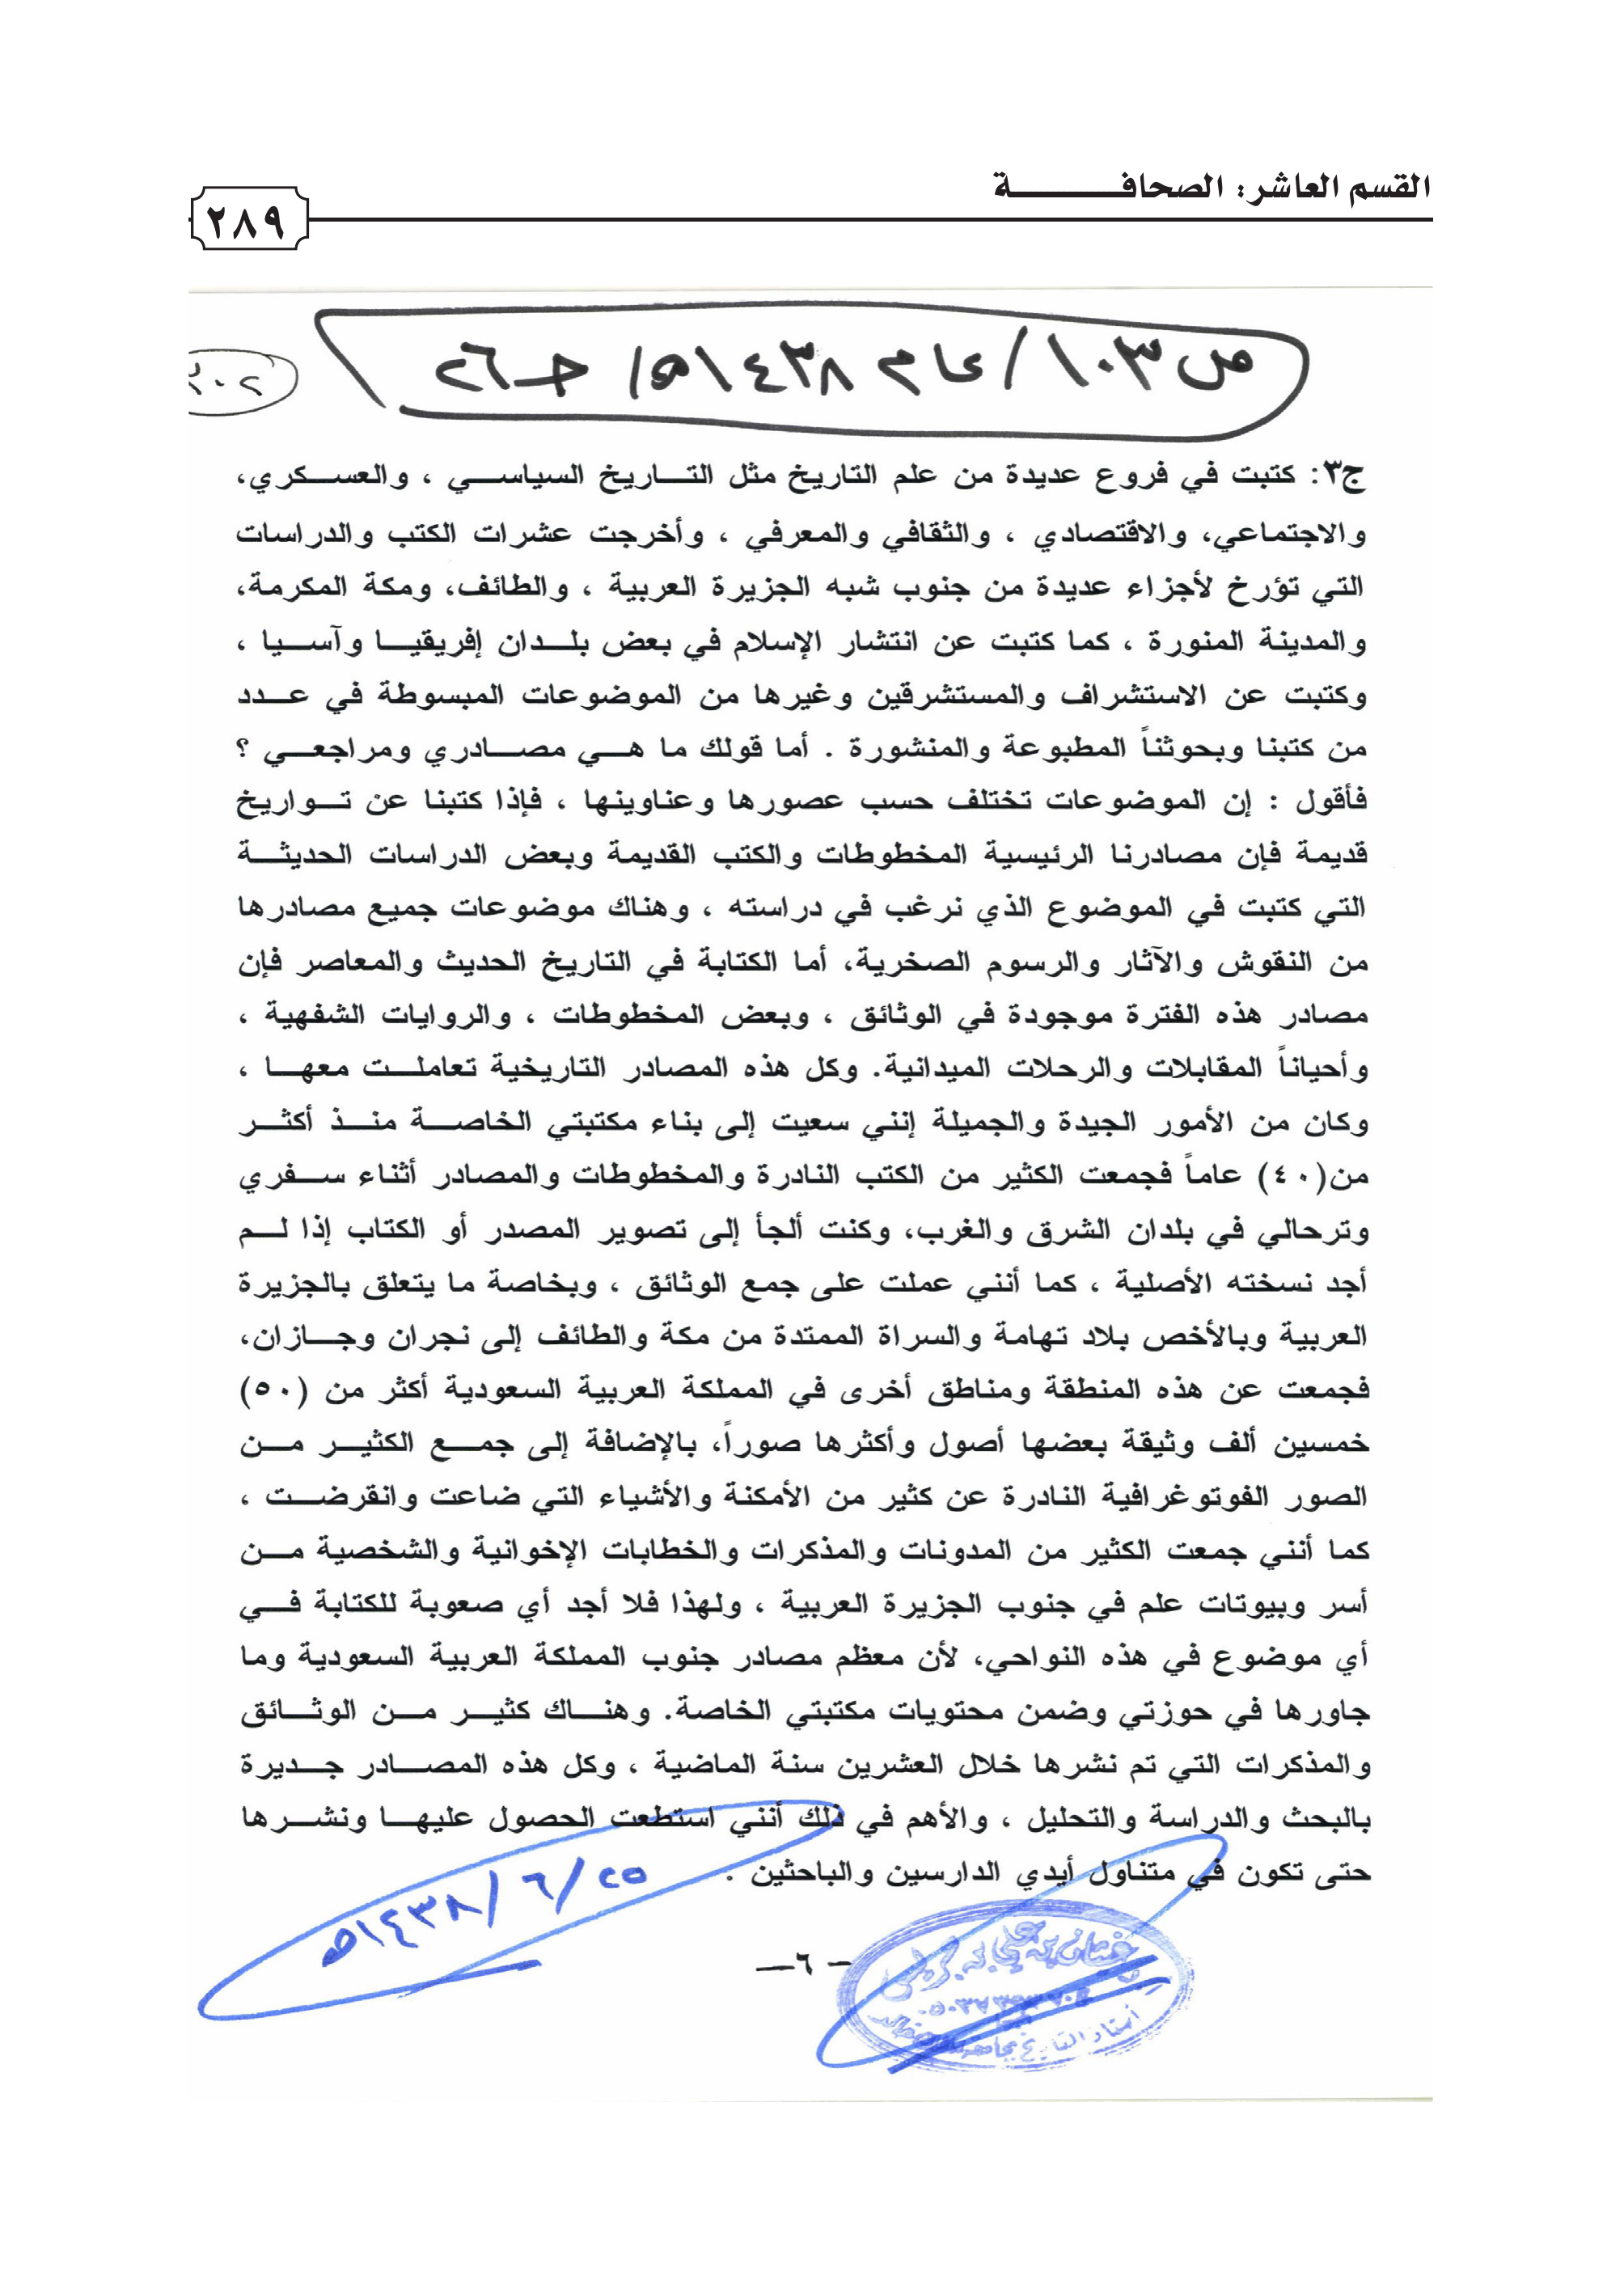 القسم العاشر: الصحافة
٢٨٩
ص ١٠٣ / عام ١٤٣٨هـ / جـ ٢٦
ج٣: كتبت في فروع عديدة من علم التاريخ مثل التاريخ السياسي ، والعسكري،
والاجتماعي، والاقتصادي ، والثقافي والمعرفي ، وأخرجت عشرات الكتب والدراسات
التي تؤرخ لأجزاء عديدة من جنوب شبه الجزيرة العربية ، والطائف، ومكة المكرمة،
والمدينة المنورة ، كما كتبت عن انتشار الإسلام في بعض بلدان إفريقيا وآسيا ،
وكتبت عن الاستشراف والمستشرقين وغيرها من الموضوعات المبسوطة في عدد
من كتبنا وبحوثناً المطبوعة والمنشورة . أما قولك ما هي مصادري ومراجعي ؟
فأقول : إن الموضوعات تختلف حسب عصورها وعناوينها ، فإذا كتبنا عن تواريخ
قديمة فإن مصادرنا الرئيسية المخطوطات والكتب القديمة وبعض الدراسات الحديثة
التي كتبت في الموضوع الذي نرغب في دراسته ، وهناك موضوعات جميع مصادرها
من النقوش والآثار والرسوم الصخرية، أما الكتابة في التاريخ الحديث والمعاصر فإن
مصادر هذه الفترة موجودة في الوثائق ، وبعض المخطوطات ، والروايات الشفهية ،
وأحياناً المقابلات والرحلات الميدانية. وكل هذه المصادر التاريخية تعاملت معها ،
وكان من الأمور الجيدة والجميلة إنني سعيت إلى بناء مكتبتي الخاصة منذ أكثر
من(٤٠) عاماً فجمعت الكثير من الكتب النادرة والمخطوطات والمصادر أثناء سفري
وترحالي في بلدان الشرق والغرب، وكنت ألجأ إلى تصوير المصدر أو الكتاب إذا لم
أجد نسخته الأصلية ، كما أنني عملت على جمع الوثائق ، وبخاصة ما يتعلق بالجزيرة
العربية وبالأخص بلاد تهامة والسراة الممتدة من مكة والطائف إلى نجران وجازان،
فجمعت عن هذه المنطقة ومناطق أخرى في المملكة العربية السعودية أكثر من (٥٠)
خمسين ألف وثيقة بعضها أصول وأكثرها صوراً، بالإضافة إلى جمع الكثير من
الصور الفوتوغرافية النادرة عن كثير من الأمكنة والأشياء التي ضاعت وانقرضت ،
كما أنني جمعت الكثير من المدونات والمذكرات والخطابات الإخوانية والشخصية من
أسر وبيوتات علم في جنوب الجزيرة العربية ، ولهذا فلا أجد أي صعوبة للكتابة في
أي موضوع في هذه النواحي، لأن معظم مصادر جنوب المملكة العربية السعودية وما
جاورها في حوزتي وضمن محتويات مكتبتي الخاصة. وهناك كثير من الوثائق
والمذكرات التي تم نشرها خلال العشرين سنة الماضية ، وكل هذه المصادر جديرة
بالبحث والدراسة والتحليل ، والأهم في ذلك أنني استطعت الحصول عليها ونشرها
حتى تكون في متناول أيدي الدارسين والباحثين .
٢٥/٦/١٤٣٨هـ
غيثان بن علي بن جريس
أستاذ التاريخ بجامعة الملك خالد
– ٦ –